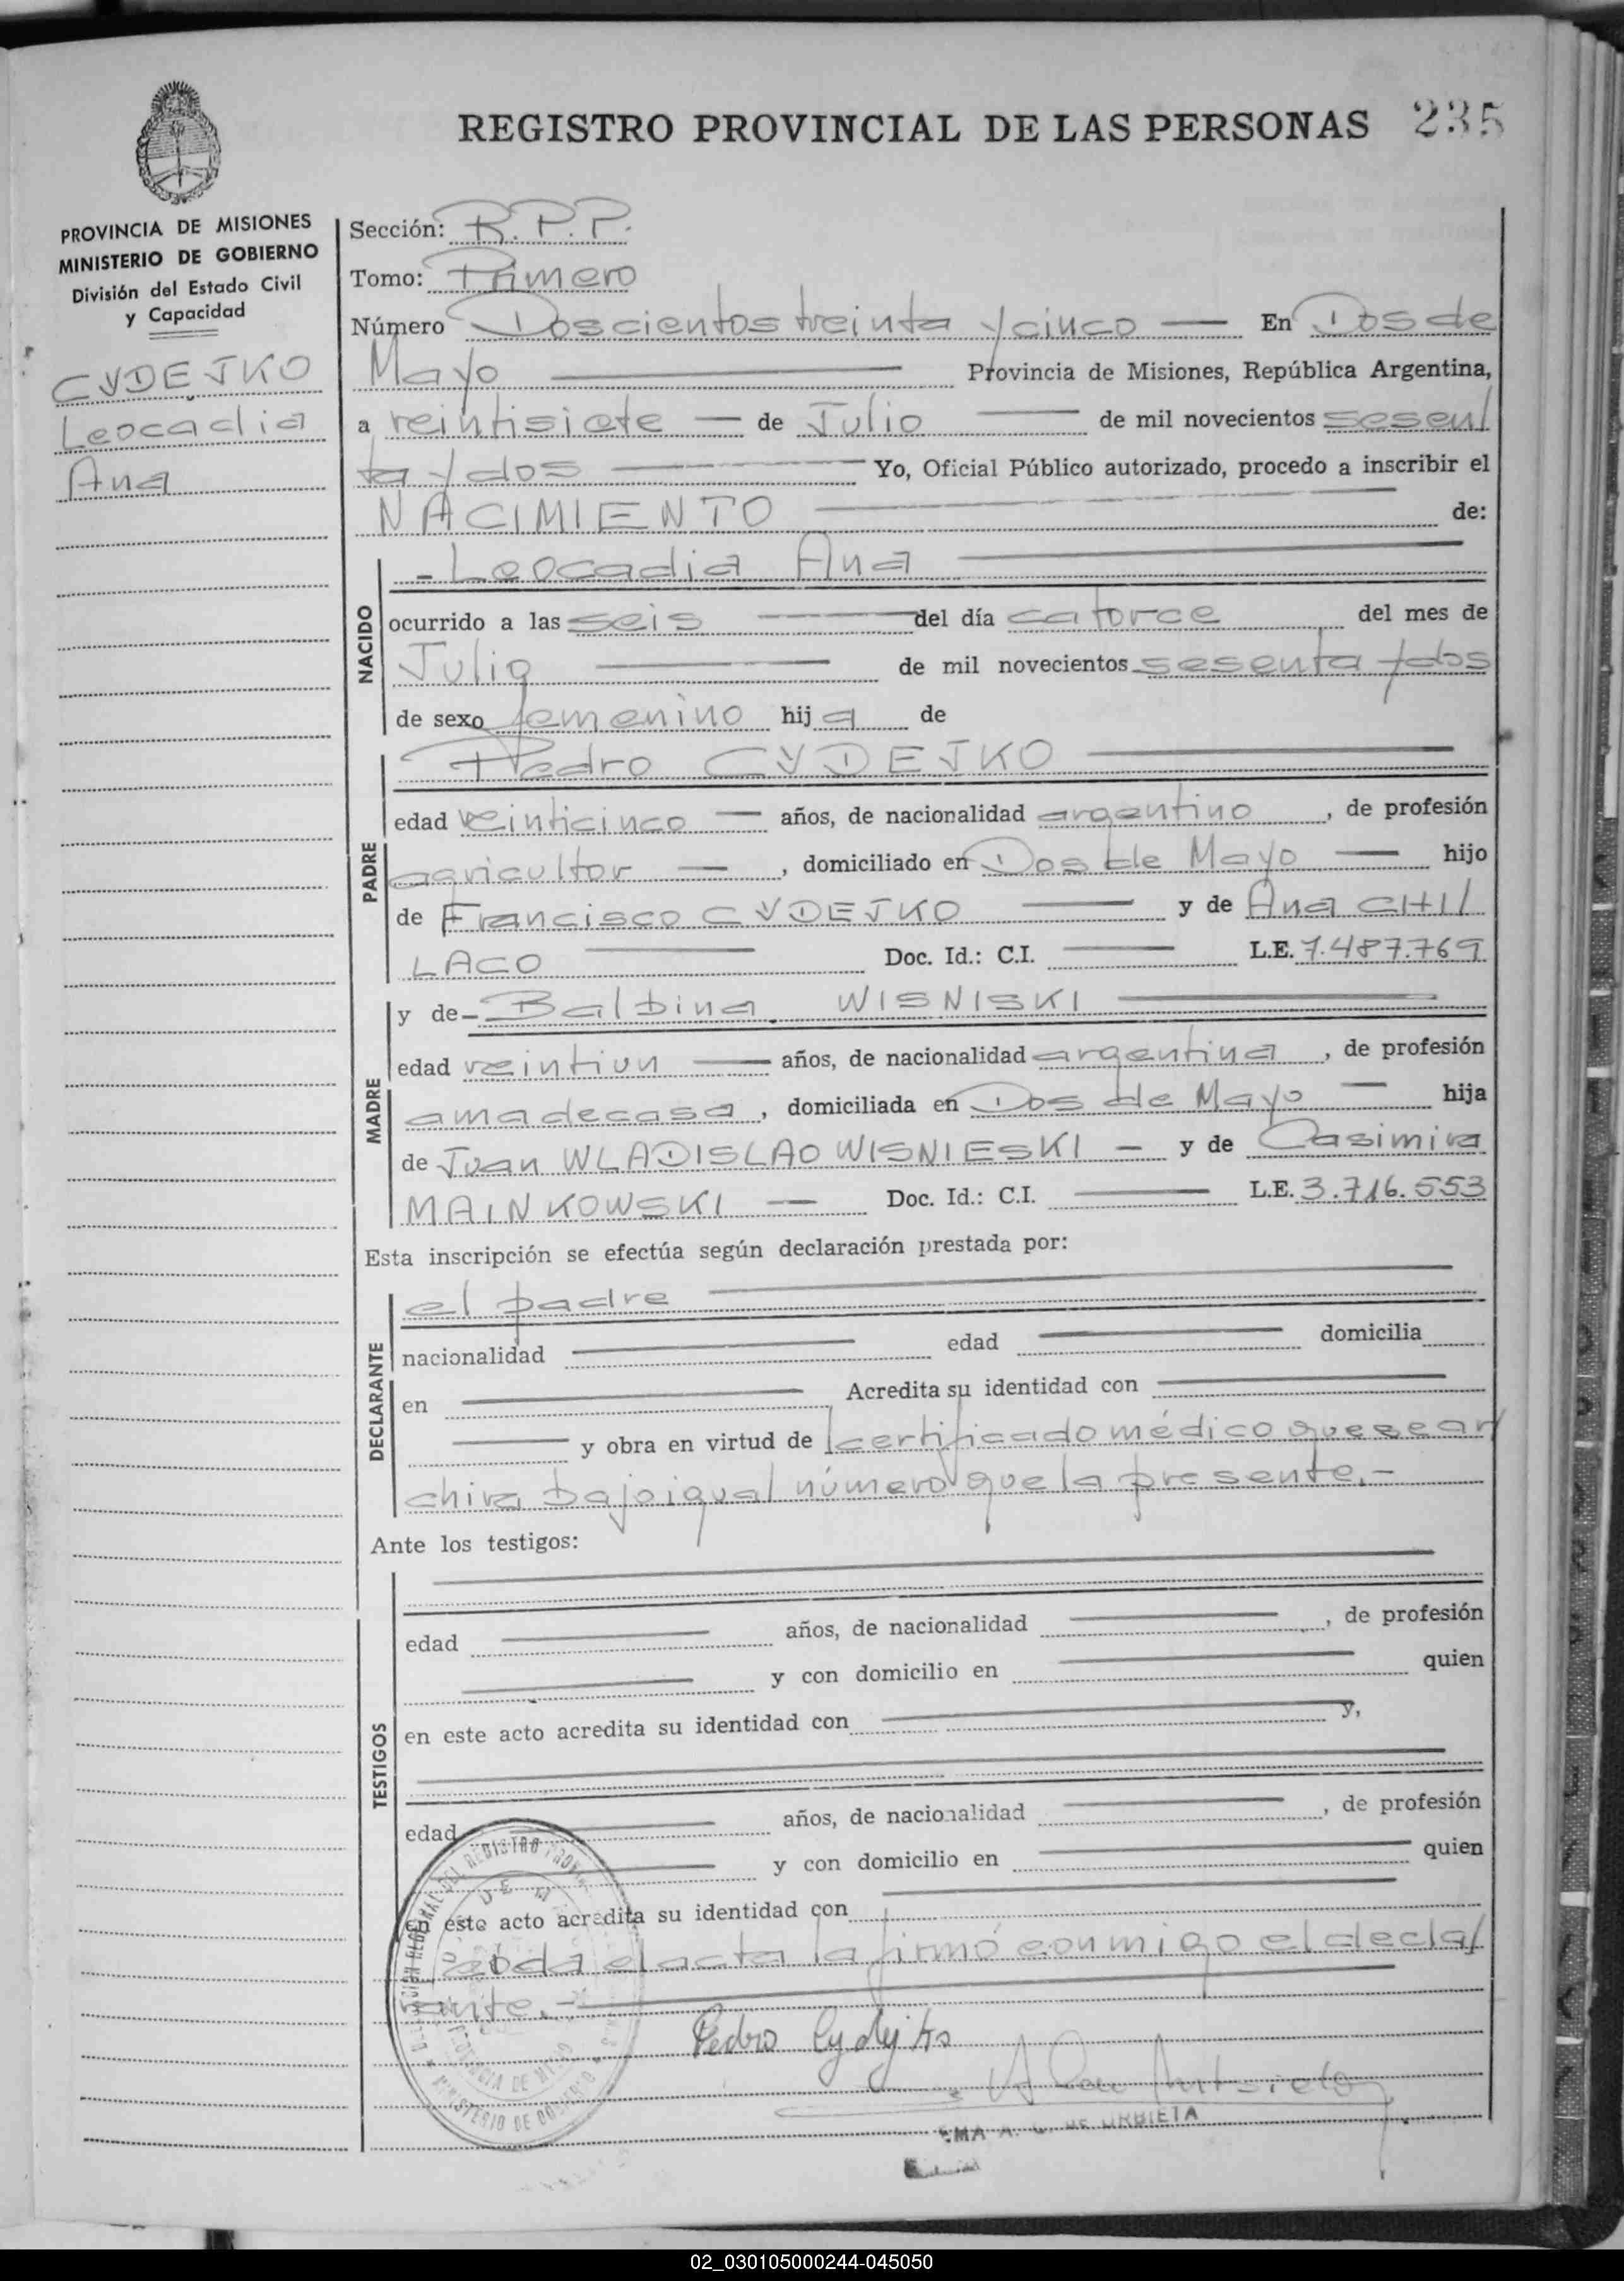 REGISTRO PROVINCIAL DE LAS PERSONAS 235
PROVINCIA DE MISIONES
MINISTERIO DE GOBIERNO
División del Estado Civil
y Capacidad
CYDEJKO
Leocadia
Ana
Sección: R.P.P.
Tomo: Primero
Número Doscientos treinta y cinco — En Dos de
Mayo — Provincia de Misiones, República Argentina,
a veintisiete — de Julio — de mil novecientos sesen/
ta y dos — Yo, Oficial Público autorizado, procedo a inscribir el
NACIMIENTO — de:
NACIDO
- Leocadia Ana —
ocurrido a las seis — del día catorce del mes de
Julio — de mil novecientos sesenta y dos
de sexo femenino hija de
PADRE
Pedro CYDEJKO —
edad veinticinco — años, de nacionalidad argentino, de profesión
agricultor —, domiciliado en Dos de Mayo — hijo
de Francisco CYDEJKO — y de Ana CHI/
LACO — Doc. Id.: C.I. — L.E. 7.487.769
MADRE
y de - Balbina WISNISKI —
edad veintiun — años, de nacionalidad argentina, de profesión
ama de casa, domiciliada en Dos de Mayo — hija
de Juan WLADISLAO WISNIESKI — y de Casimira
MAINKOWSKI — Doc. Id.: C.I. — L.E. 3.716.553
Esta inscripción se efectúa según declaración prestada por:
DECLARANTE
el padre —
nacionalidad — edad — domicilia
en — Acredita su identidad con —
— y obra en virtud de certificado médico que se ar/
chiva bajo igual número que la presente.-
Ante los testigos:
TESTIGOS
edad — años, de nacionalidad —, de profesión
— y con domicilio en — quien
en este acto acredita su identidad con — y,
edad — años, de nacionalidad —, de profesión
— y con domicilio en — quien
en este acto acredita su identidad con —
el acta la firmó conmigo el decla/
rante.-
Pedro Cydejko
EMA A. C. DE URBIETA
DEL REGISTRO
MINISTERIO DE GOBIERNO
02_030105000244-045050